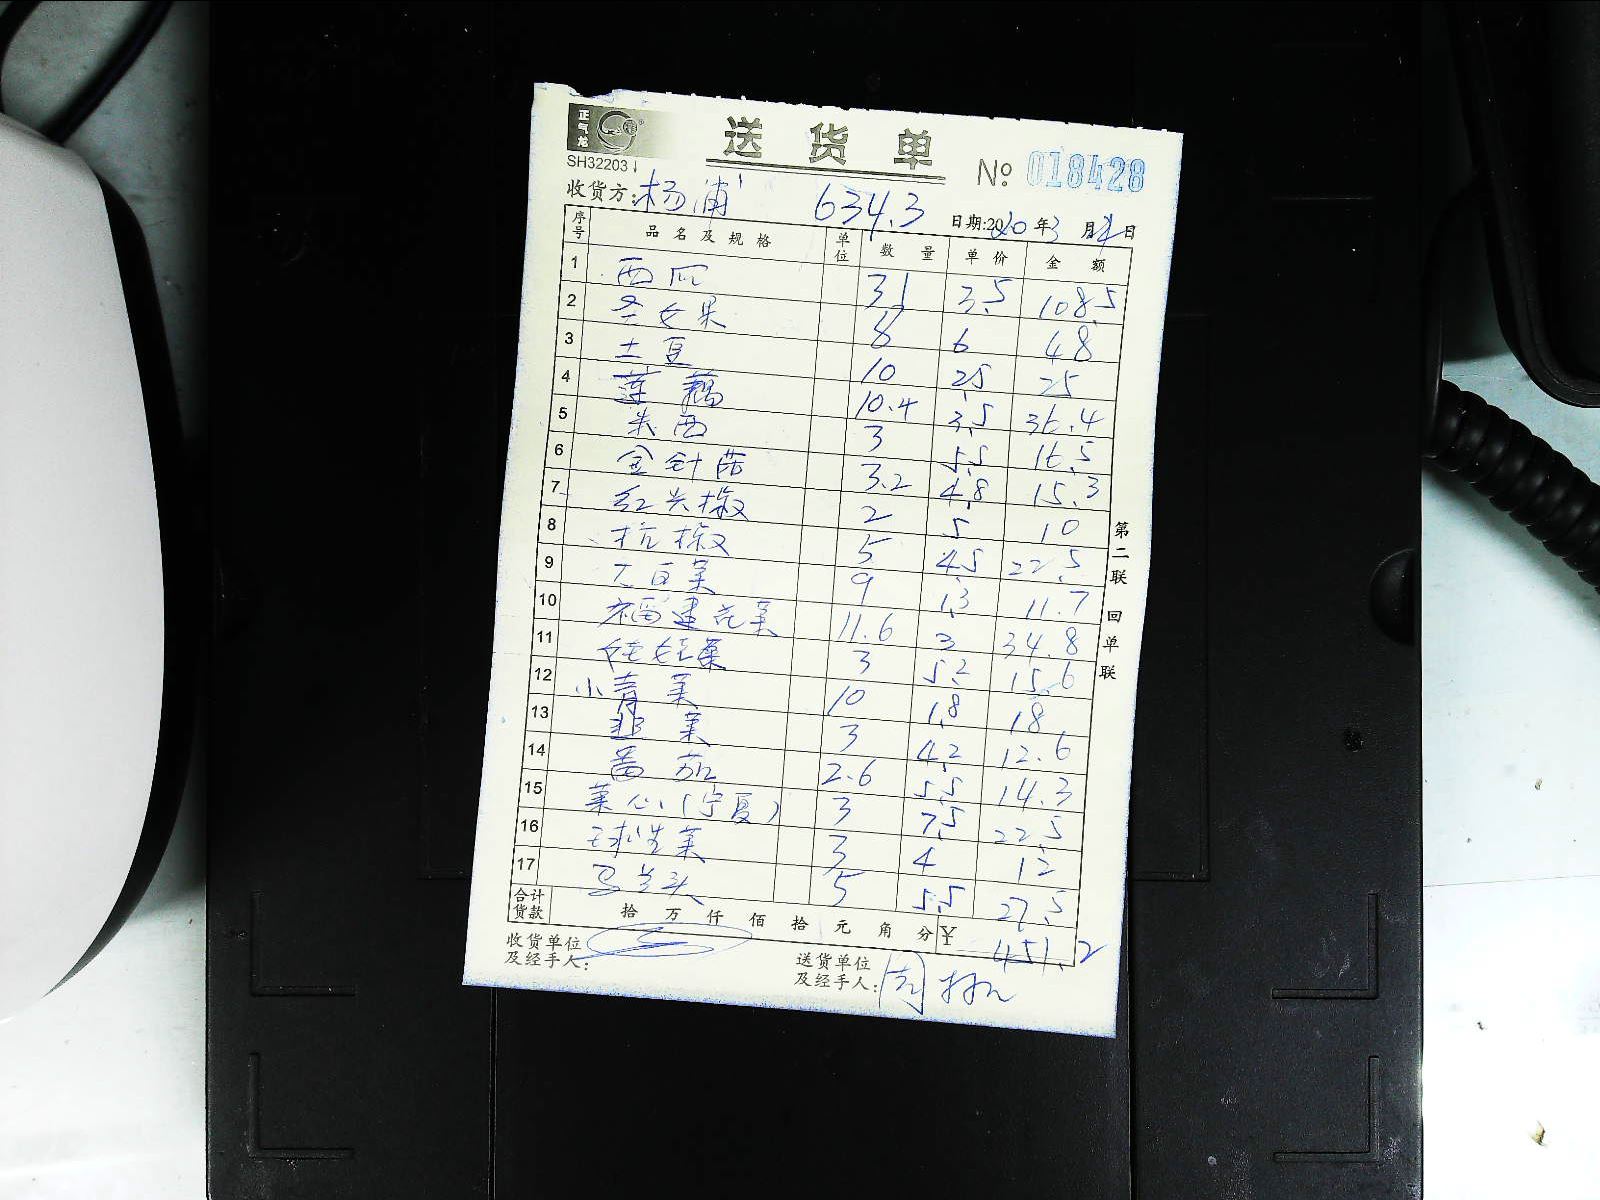 正气龙
送货单
SH32203
№ 018428
收货方: 杨浦 634.3 日期:2020年3月日
序号 品名及规格 单位 数量 单价 金额
1 西瓜 31 3.5 108.5
2 圣女果 8 6 48
3 土豆 10 2.5 25
4 莲藕 10.4 3.5 36.4
5 朱西 3 5.5 16.5
6 金针菇 3.2 4.8 15.3
7 红尖椒 2 5 10
8 杭椒 5 4.5 22.5
9 大白菜 9 1.3 11.7
10 福建花菜 11.6 3 34.8
11 娃菜 3 5.2 15.6
12 小青菜 10 1.8 18
13 韭菜 3 4.2 12.6
14 番茄 2.6 5.5 14.3
15 菜心(宁夏) 3 7.5 22.5
16 球生菜 3 4 12
17 马兰头 5 5.5 27.5
合计货款 拾 万 仟 佰 拾 元 角 分 ¥ 451.2
收货单位及经手人:
送货单位及经手人: 周
第二联 回单联